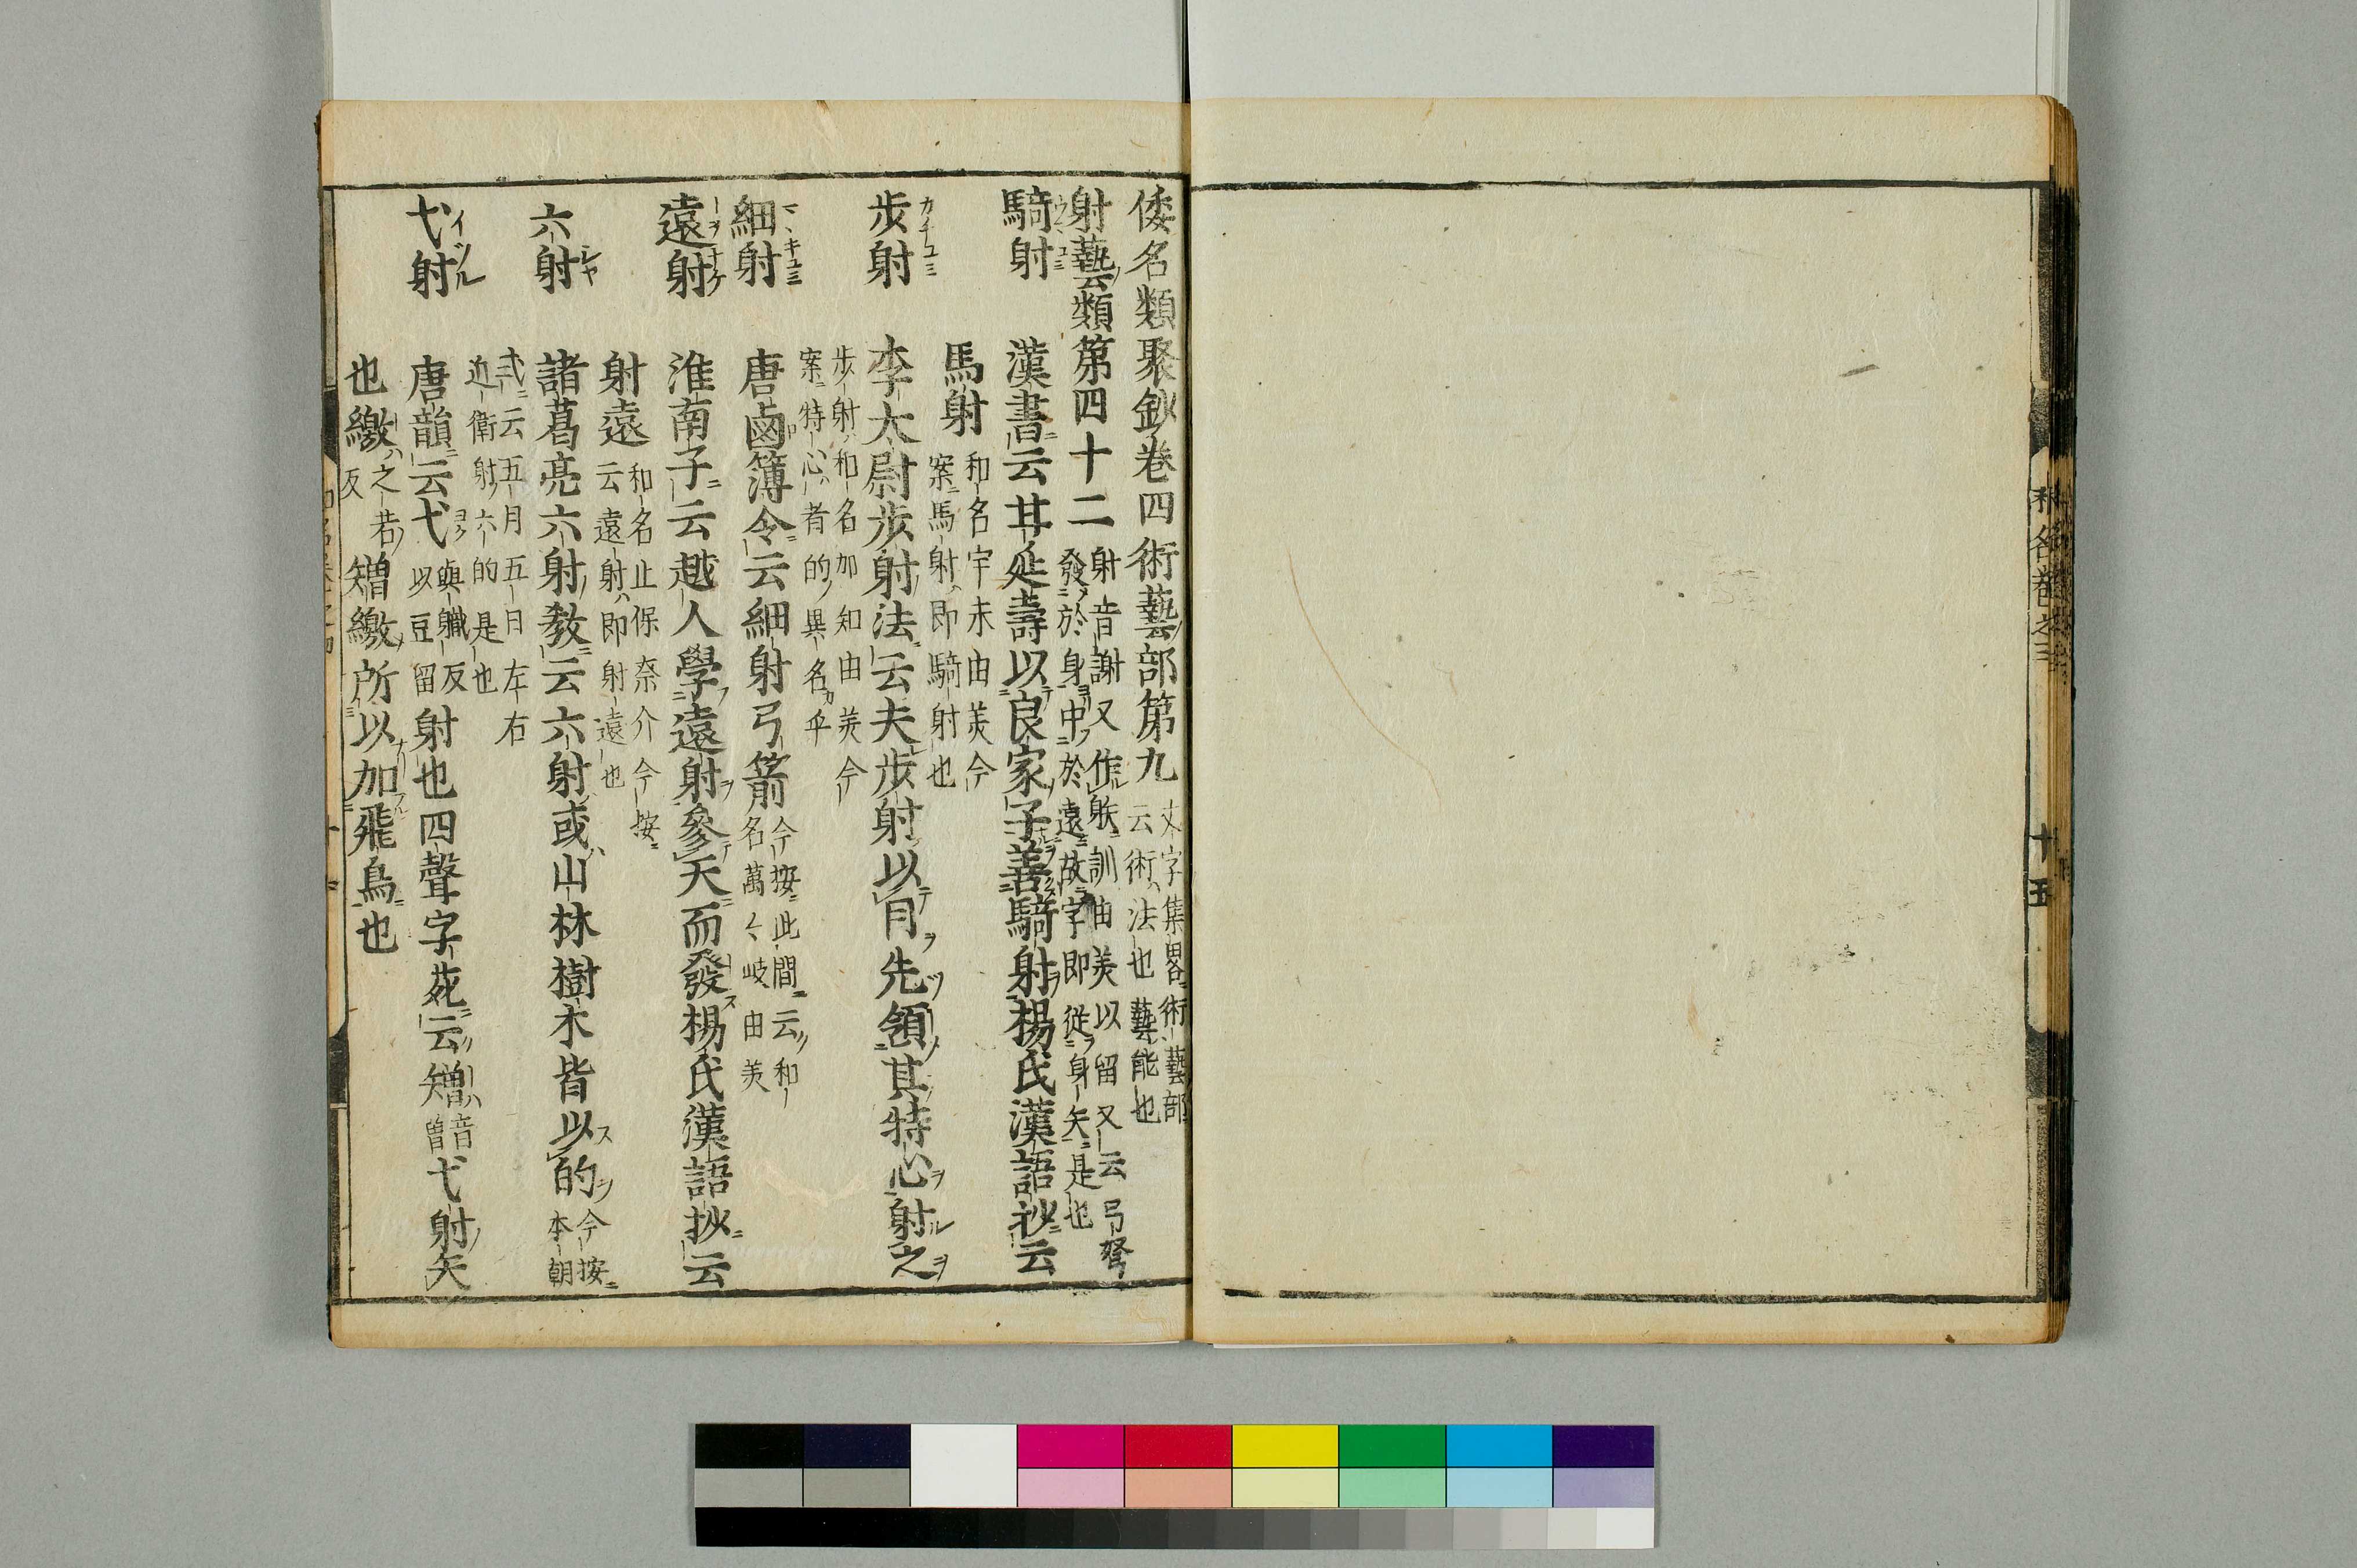 和名卷之三　十五
倭名類聚鈔卷四術藝部第九 文字集畧術藝部云術法也藝能也
射藝類第四十二 射音謝又作䠶訓由美以留又云弓弩發於身中於遠故字即從身矢是也
騎射 漢書云甘延壽以良家子善騎射楊氏漢語抄云
馬射 和名宇末由美今案馬射即騎射也
步射 李太尉步射法云夫步射以月先領其特心射之
步射和名加知由美今案特心者的異名乎
細射 唐鹵簿令云細射弓箭 今按此間云和名萬々岐由美
遠射 淮南子云越人學遠射參天而發楊氏漢語抄云
射遠 和名止保奈介今按云遠射即射遠也
六射 諸葛亮六射教云六射或山林樹木皆以的 今按本朝
式云五月五日左右近衛射六的是也
弋射 唐韻云弋 與職反以豆留 射也四聲字苑云矰 音曾 弋射矢
也繳 之若反 矰繳所以加飛鳥也